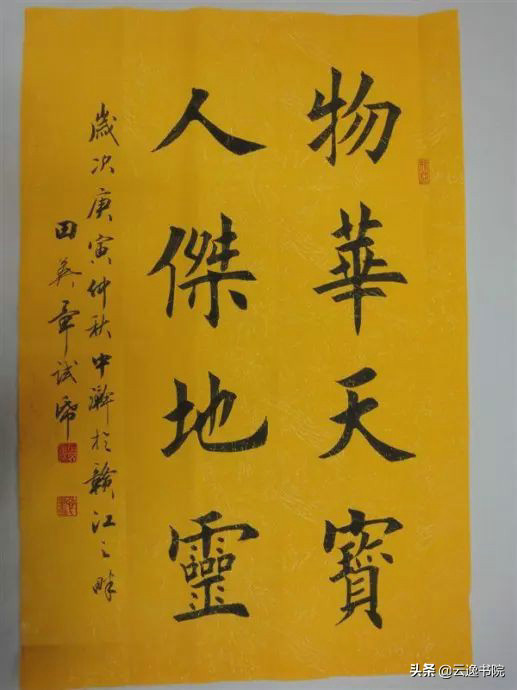 物華天寶
人傑地靈
歲次庚寅仲秋中澣於贛江之畔
田英章試筆
头条 @云逸书院